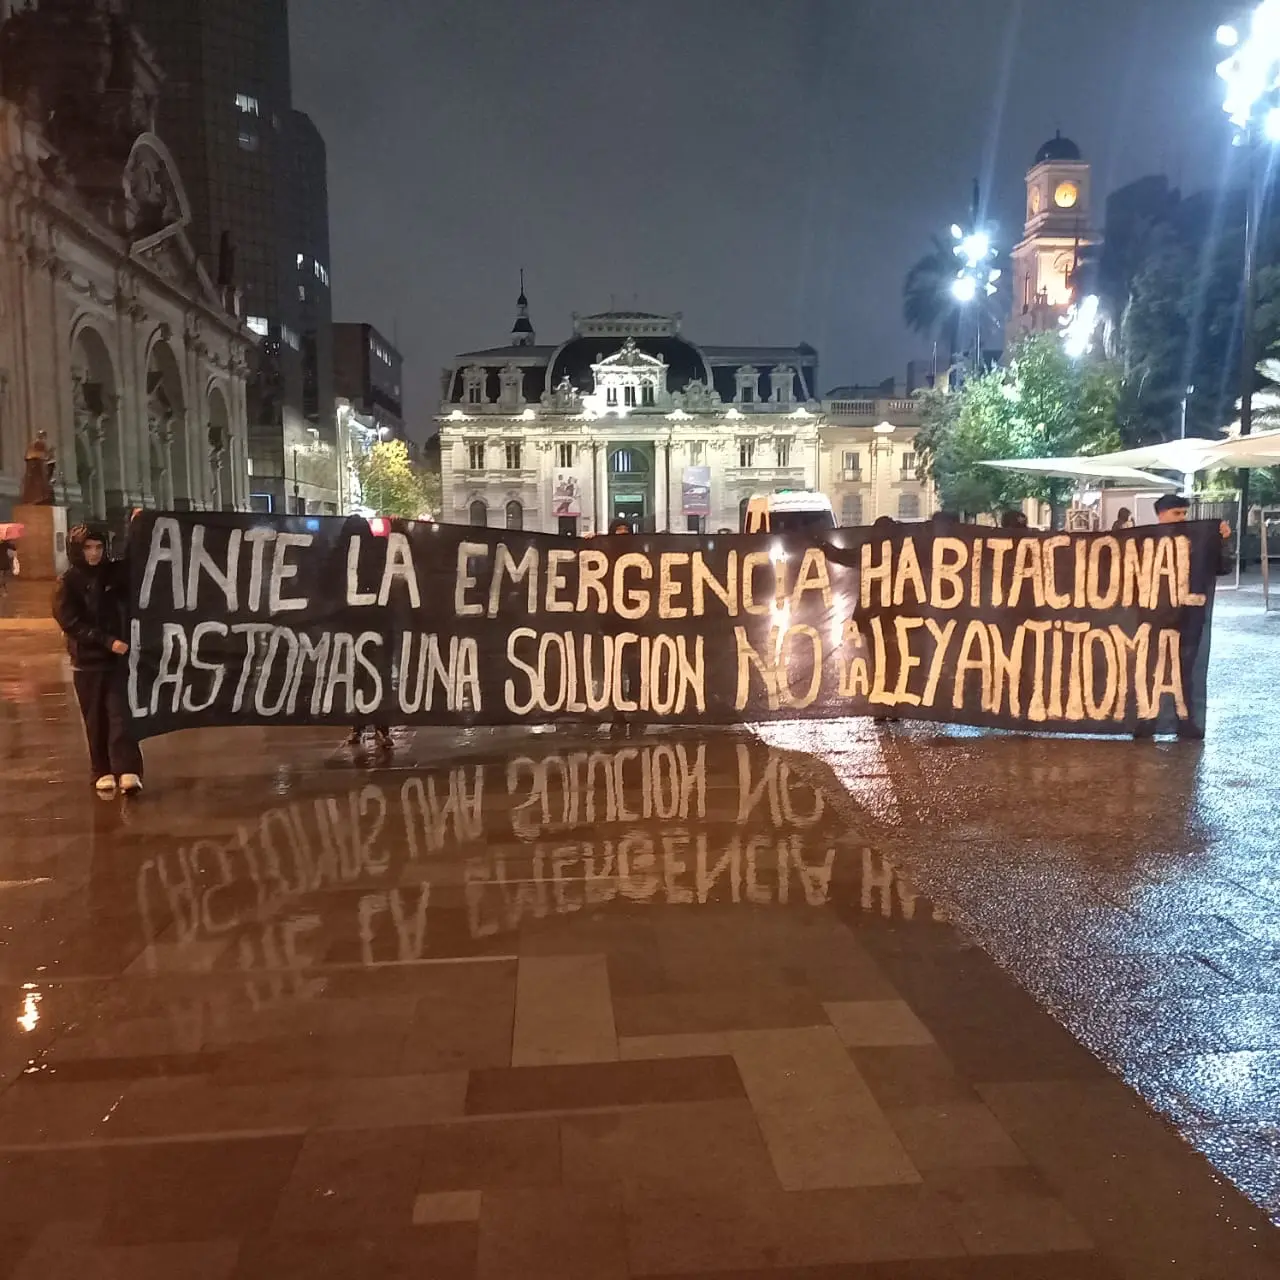 ANTE LA EMERGENCIA HABITACIONAL
LAS TOMAS UNA SOLUCION NO A LA LEY ANTITOMA